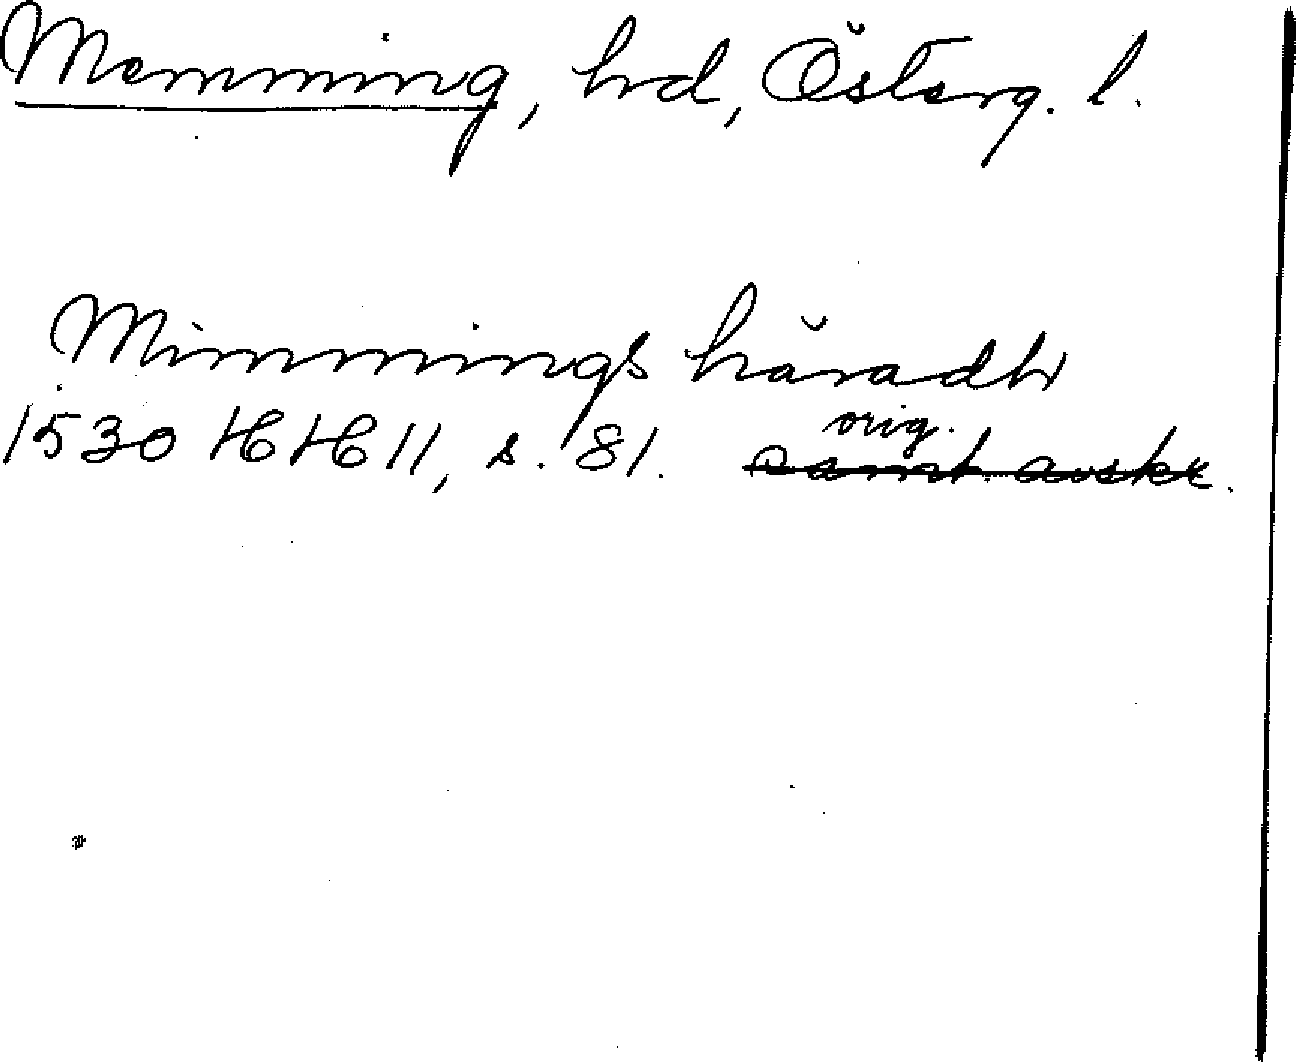 Memming, hrd, Österg. l.
Mimmings häradh
orig.
1530 HH 11, s. 81. samt. avskr.